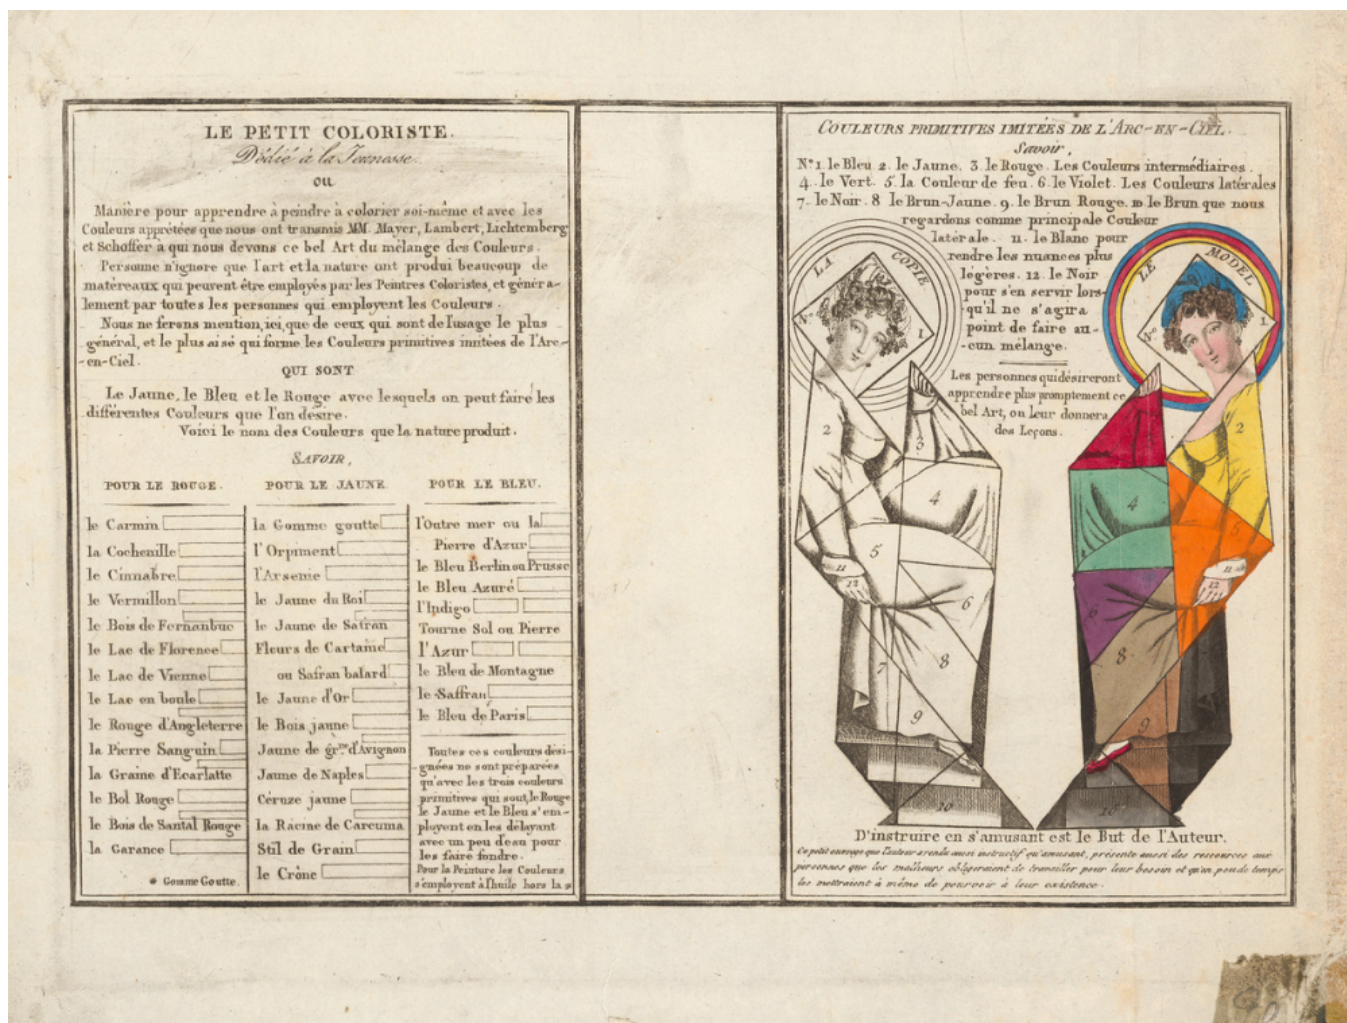 LE PETIT COLORISTE.
Dédié à la Jeunesse.
OU
Manière pour apprendre à peindre à colorier soi-même et avec les
Couleurs apprêtées que nous ont transmis MM. Mayer, Lambert, Lichtemberg
et Schoffer à qui nous devons ce bel Art du mélange des Couleurs.
Personne n'ignore que l'art et la nature ont produi beaucoup de
matéreaux qui peuvent être employés par les Peintres Coloristes, et généra-
lement par toutes les personnes qui employent les Couleurs.
Nous ne ferons mention, ici, que de ceux qui sont de l'usage le plus
général, et le plus aisé qui forme les Couleurs primitives imitées de l'Arc-
-en-Ciel.
QUI SONT
Le Jaune, le Bleu et le Rouge avec lesquels on peut faire les
différentes Couleurs que l'on désire.
Voici le nom des Couleurs que la nature produit.
SAVOIR,
POUR LE ROUGE.
le Carmin
la Cochenille
le Cinnabre
le Vermillon
le Bois de Fernanbuc
le Lac de Florence
le Lac de Vienne
le Lac en boule
le Rouge d'Angleterre
la Pierre Sanguin
la Graine d'Ecarlatte
le Bol Rouge
le Bois de Santal Rouge
la Garance
* Gomme Goutte.
POUR LE JAUNE.
la Gomme goutte
l'Orpiment
l'Arsenic
le Jaune du Roi
le Jaune de Safran
Fleurs de Cartame
ou Safran batard
le Jaune d'Or
le Bois jaune
Jaune de grne d'Avignon
Jaune de Naples
Céruze jaune
la Racine de Carcuma
Stil de Grain
le Crône
POUR LE BLEU.
l'Outre mer ou la
Pierre d'Azur
le Bleu Berlin ou Prusse
le Bleu Azuré
l'Indigo
Tourne Sol ou Pierre
l'Azur
le Bleu de Montagne
le Saffran
le Bleu de Paris
Toutes ces couleurs dési-
gnées ne sont préparées
qu'avec les trois couleurs
primitives qui sout, le Rouge
le Jaune et le Bleu s'em-
ployent en les délayant
avec un peu d'eau pour
les faire fondre.
Pour la Peinture les Couleurs
s'employent à l'huile hors la *
COULEURS PRIMITIVES IMITÉES DE L'ARC-EN-CIEL.
Savoir,
N° 1. le Bleu 2. le Jaune. 3. le Rouge. Les Couleurs intermédiaires.
4. le Vert. 5. la Couleur de feu. 6. le Violet. Les Couleurs latérales
7. le Noir. 8 le Brun-Jaune. 9. le Brun Rouge. 10 le Brun que nous
regardons comme principale Couleur
latérale. 11. le Blanc pour
rendre les nuances plus
légères. 12. le Noir
pour s'en servir lors-
qu'il ne s'agira
point de faire au-
-cun mélange.
Les personnes qui désireront
apprendre plus promptement ce
bel Art, on leur donnera
des Leçons.
LA COPIE
N° 1.
2
3
4
5
11
12
6
7
8
9
10
LE MODEL
N° 1.
2
4
5
11
12
6
8
9
10
D'instruire en s'amusant est le But de l'Auteur.
Ce petit ouvrage que l'auteur a rendu aussi instructif qu'amusant, présente aussi des ressources aux
personnes que les malheurs obligeraient de travailler pour leur besoin et qu'en peu de temps
les mettraient à même de pourvoir à leur existence.